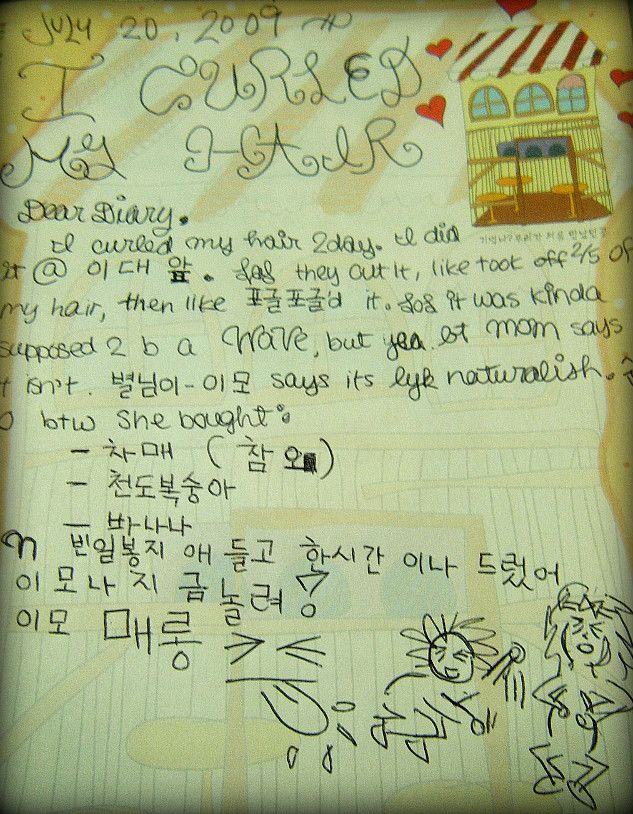 July 20, 2009
I CURLED
MY HAIR
기억나? 우리가 처음 만났던 곳
Dear Diary.
I curled my hair 2day. I did
it @ 이대 앞. they cut it, like took off 2/5 of
my hair, then like 포글포글 it. it was kinda
supposed 2 b a wave, but yea mom says
t isn't. 별님이-이모 says its lyk naturalish.
O btw she bought:
- 차매 (참외)
- 천도복숭아
- 바나나
n 빈일봉지 애 들고 한시간 이나 드렀어
이모나 지금 놀려?
이모 매롱 > <